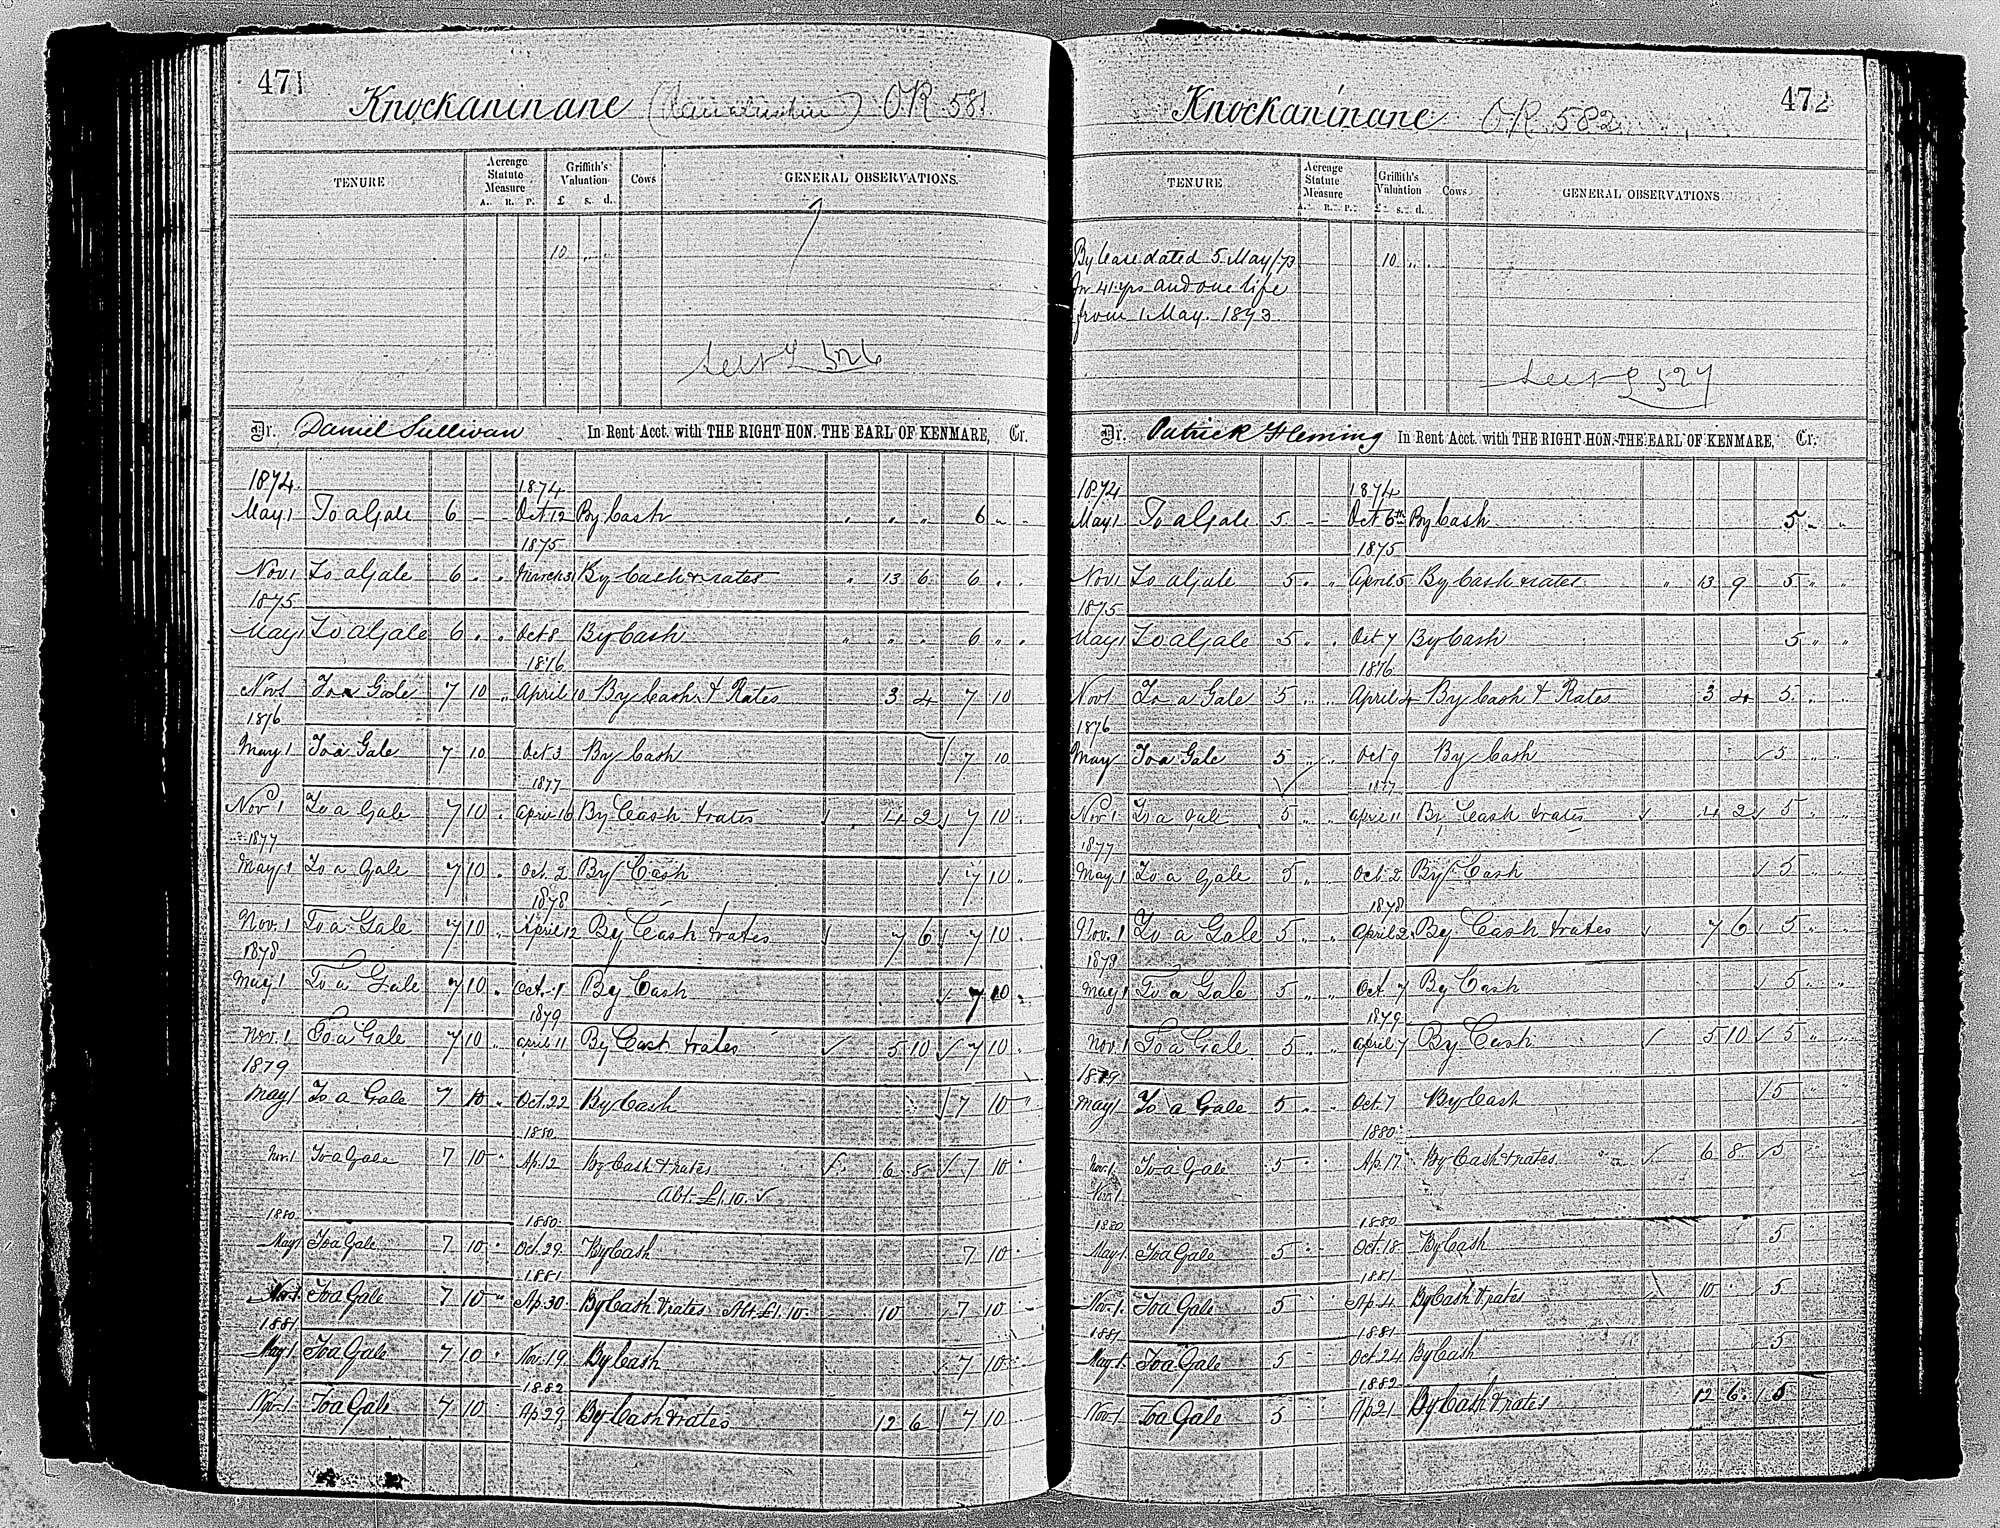 471
Knockaninane OR 581
TENURE Acreage Statute Measure A. R. P. Griffith's Valuation £ s. d. Cows GENERAL OBSERVATIONS.
10 " "
526
Dr. Daniel Sullivan In Rent Acct. with THE RIGHT HON. THE EARL OF KENMARE, Cr.
1874. 1874
May 1 To a Gale 6 - - Oct 12 By Cash " " " 6 " "
1875
Nov 1 To a Gale 6 " " March 31 By Cash & rates " 13 6 6 " "
1875
May 1 To a Gale 6 " " Oct 8 By Cash " " " 6 " "
1876
Nov 1 To a Gale 7 10 " April 10 By Cash & Rates 3 4 7 10
1876
May 1 To a Gale 7 10 Oct 3 By Cash √ 7 10
1877
Nov 1 To a Gale 7 10 " April 16 By Cash & rates √ 4 2 √ 7 10 "
1877
May 1 To a Gale 7 10 " Oct. 2 By Cash √ 7 10 "
1878
Nov. 1 To a Gale 7 10 " April 12 By Cash & rates √ 7 6 √ 7 10 "
1878
May 1 To a Gale 7 10 " Oct. 1 By Cash √ 7 10 "
1879
Nov. 1 To a Gale 7 10 " April 11 By Cash & rates √ 5 10 √ 7 10 "
1879
May 1 To a Gale 7 10 " Oct. 22 By Cash √ 7 10 "
1880
Nov. 1 To a Gale 7 10 " Ap. 12 By Cash & rates √ 6 8 √ 7 10 "
Abt. £1.10. √
1880 1880
May 1 To a Gale 7 10 " Oct. 29 By Cash 7 10 "
1881
Nov. 1 To a Gale 7 10 " Ap. 30 By Cash & rates Abt. £1.10. 10 √ 7 10
1881
May 1 To a Gale 7 10 " Nov. 19 By Cash √ 7 10 "
1882
Nov. 1 To a Gale 7 10 Ap 29 By Cash & rates 12 6 √ 7 10
472
Knockaninane OR 582
TENURE Acreage Statute Measure A. R. P. Griffith's Valuation £ s. d. Cows GENERAL OBSERVATIONS
By lease dated 5 May/73 10 " "
for 41 yrs and one life
from 1 May. 1873
527
Dr. Patrick Fleming In Rent Acct. with THE RIGHT HON. THE EARL OF KENMARE, Cr.
1874 1874
May 1 To a Gale 5 - - Oct 6th By Cash 5 " "
1875
Nov 1 To a Gale 5 " " April 5 By Cash & rates " 13 9 5 " "
1875
May 1 To a Gale 5 " " Oct 7 By Cash 5 " "
1876
Nov 1 To a Gale 5 " " April 4 By Cash & Rates 3 4 5 " "
1876
May To a Gale 5 " " Oct 9 By Cash √ 5 " "
1877
Nov 1 To a Gale 5 " " April 11 By Cash & rates √ 4 2 √ 5 " "
1877
May 1 To a Gale 5 " " Oct. 2 By Cash √ 5 " "
1878
Nov. 1 To a Gale 5 " " April 2 By Cash & rates √ 7 6 √ 5 " "
1878
May 1 To a Gale 5 " " Oct. 7 By Cash √ 5 " "
1879
Nov. 1 To a Gale 5 " " April 7 By Cash √ 5 10 √ 5 " "
1879
May 1. To a Gale 5 " " Oct. 7 By Cash √ 5 " "
1880
Nov. 1. To a Gale 5 " " Ap. 17 By Cash & rates √ 6 8 √ 5 "
Nov. 1.
1880 1880
May 1. To a Gale 5 " " Oct. 18 By Cash 5
1881
Nov. 1. To a Gale 5 " " Ap. 4 By Cash & rates 10 √ 5
1881 1881
May 1. To a Gale 5 " " Oct 24 By Cash 5
1882
Nov. 1 To a Gale 5 Ap 21 By Cash & rates 12 6 √ 5